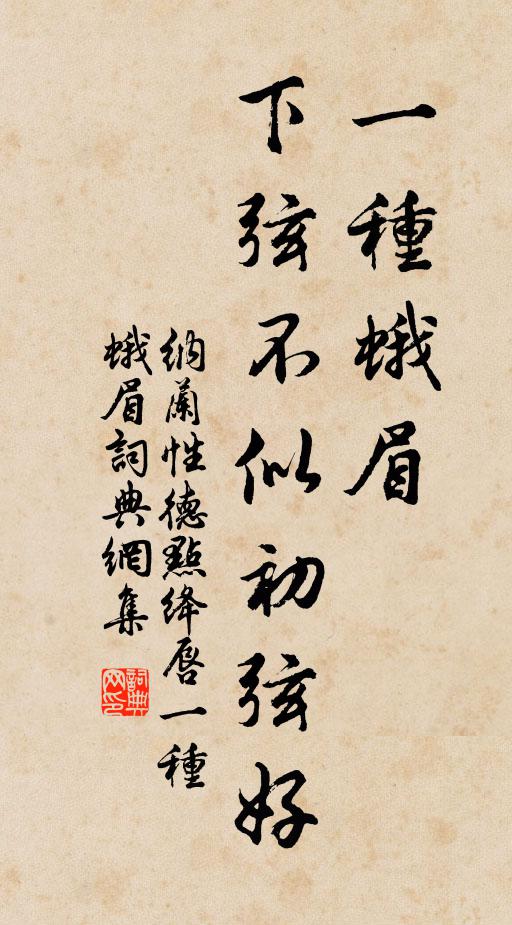 一種蛾眉
下弦不似初弦好
納蘭性德點絳唇一種
蛾眉詞典網集
詞典
网印